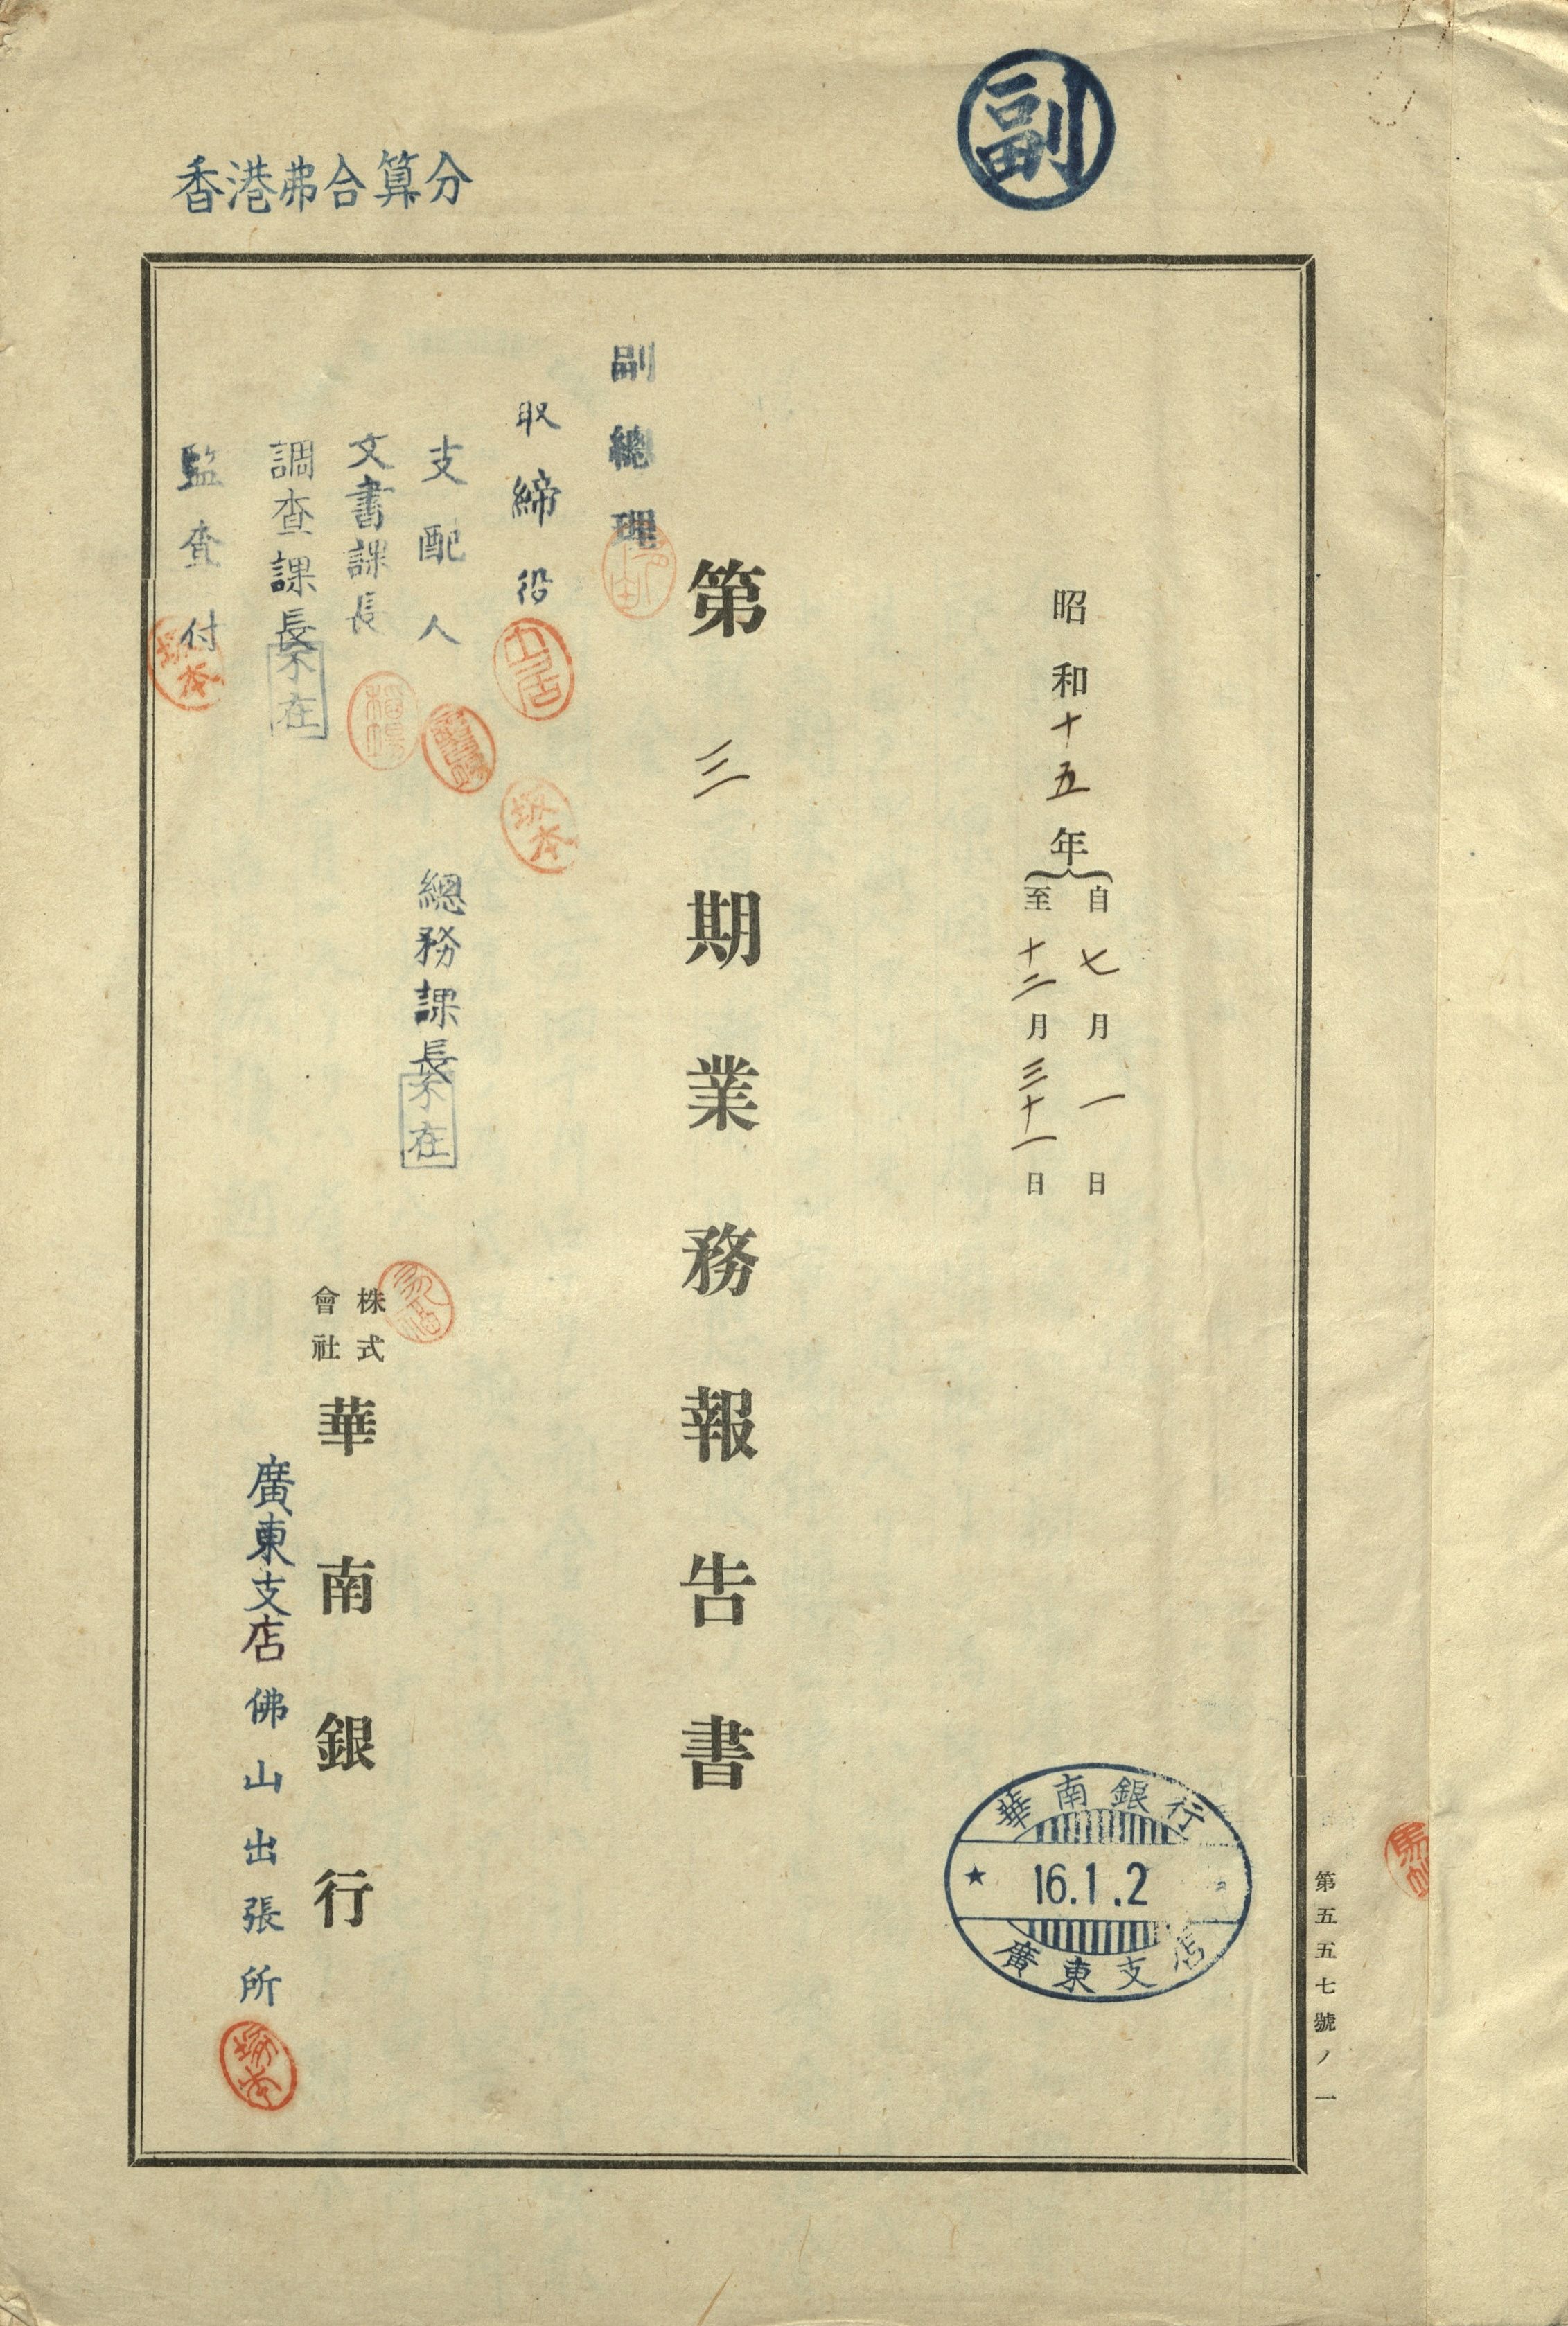 副
香港弗合算分
昭和十五年
自七月一日
至十二月三十一日
第三期業務報告書
副總理
取締役
土居
坂本
支配人
文書課長
調查課長
不在
監查付
坂本
總務課長
不在
株式
會社
華南銀行
廣東支店佛山出張所
華南銀行
16.1.2
廣東支店
第五五七號ノ一